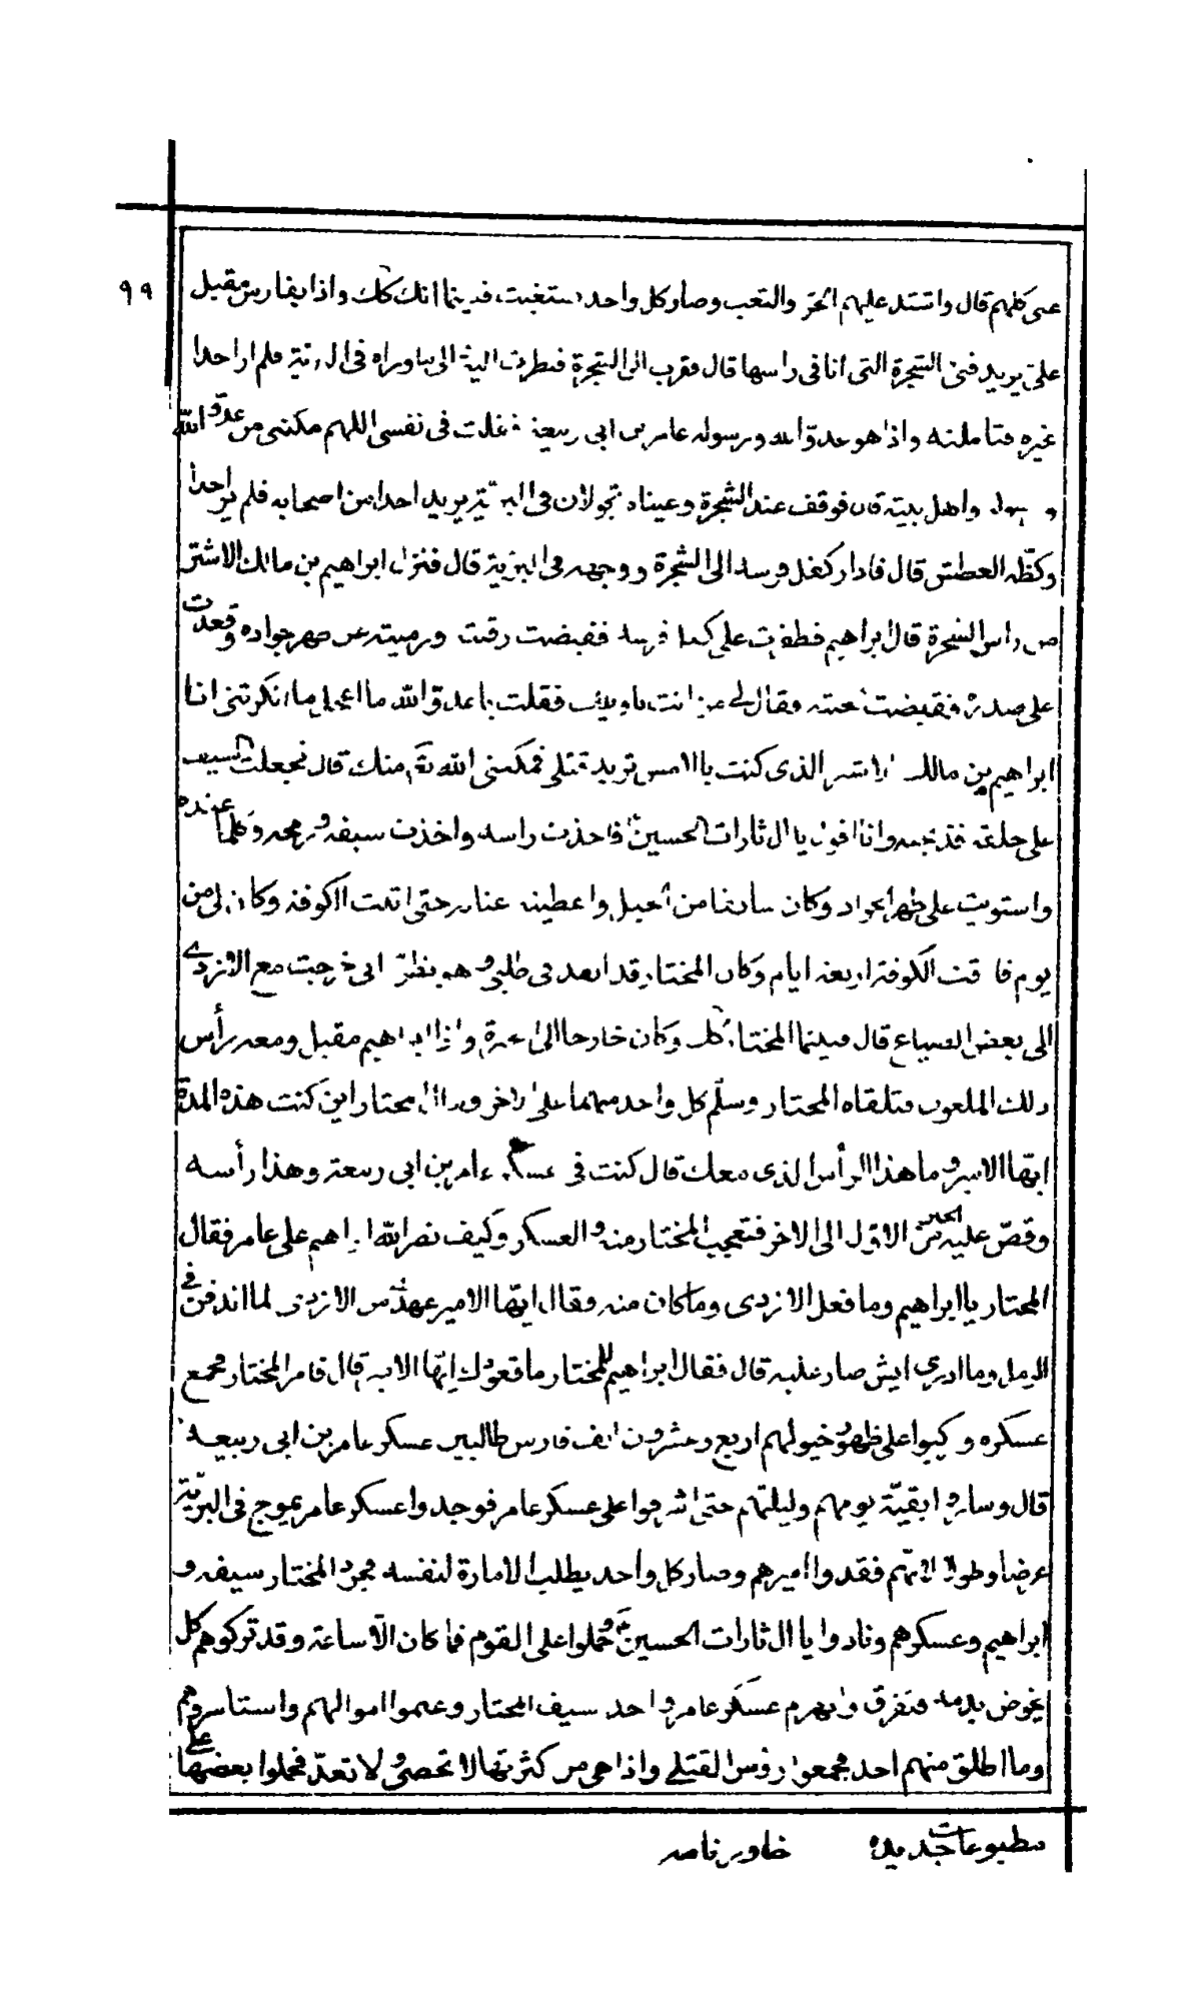 ٩٩
على كلهم قال واشتد عليهم الحر والتعب وصار كل واحد يستغيث فبينما انا كذلك واذا بفارس مقبل
على يريد فى الشجرة التى انا فى راسها قال فقرب الى الشجرة فنظرت اليه الى ماوراه فى البرية فلم ار احدا
غيره فتاملته واذا هو عدو الله ورسوله عامر بن ابى ربيعة فقلت فى نفسى اللهم مكننى من عدو الله
واهل بيته قال فوقف عند الشجرة وعيناه تجولان فى البرية يريد احدا من اصحابه فلم ير احدا
وكظه العطش قال فادار كفل فرسه الى الشجرة ووجهه فى البرية قال فنزل ابراهيم بن مالك الاشتر
من راس الشجرة قال ابراهيم فطفرت على كفل فرسه فقبضت رقبته ورميته عن ظهر جواده وقعدت
على صدره فقبضت لحيته فقال لى من انت ياويلك فقلت يا عدو الله ما اعجل ما انكرتنى انا
ابراهيم بن مالك الاشتر الذى كنت باالامس تريد قتلى فمكننى الله تعا منك قال فجعلت السيف
على حلقه فذبحته وانا اقول يا ال ثارات الحسين ع فاخذت راسه واخذت سيفه ورمحه وكلما عنده
واستويت على ظهر الجواد وكان سابقا من الخيل واعطيته عنانه حتى اتيت الكوفة وكان لى من
يوم فارقت الكوفة اربعة ايام وكان المختار قد ابعد فى طلبى وهو يظن انى خرجت مع الازدى
الى بعض الضياع قال فبينما المختار كك وكان خارجا الى واذا ابراهيم مقبل ومعه رأس
ذلك الملعون فتلقاه المختار وسلم كل واحد منهما على الاخر وقال المختار اين كنت هذه المدة
ايها الامير وما هذا الرأس الذى معك قال كنت فى عسكر عامر بن ابى ربيعة وهذا رأسه
وقص عليه الخبر من الاول الى الاخر فتعجب المختار منه والعسكر وكيف نصر الله ابراهيم على عامر فقال
المختار يا ابراهيم وما فعل الازدى وما كان منه فقال ايها الامير عهدى من الازدى لما اندفن فى
الرمل وما ادرى ايش صار عليه قال فقال ابراهيم للمختار ما قعودك ايها الامير قال قام المختار فجمع
عسكره وركبوا على ظهور خيولهم اربع وعشرون الف فارس طالبين عسكر عامر بن ابى ربيعة
قال وساروا بقية يومهم وليلتهم حتى اشرفوا على عسكر عامر فوجدوا عسكر عامر يموج فى البرية
عرضا وطولا لانهم فقدوا اميرهم وصار كل واحد يطلب الامارة لنفسه فجرد المختار سيفه و
ابراهيم وعسكرهم ونادوا يا ال ثارات الحسين ع وحملوا على القوم فما كان الا ساعة وقد تركوهم كل
يخوض بدمه فتفرق وانهزم عسكر عامر واخذ سيف المختار وغنموا اموالهم واستاسروهم
وما اطلق منهم احد فجمعوا رؤس القتلى واذا هى من كثرتها لا تحصى ولا تعد فحملوا بعضها على
مطبوعات جديده خاور نامه